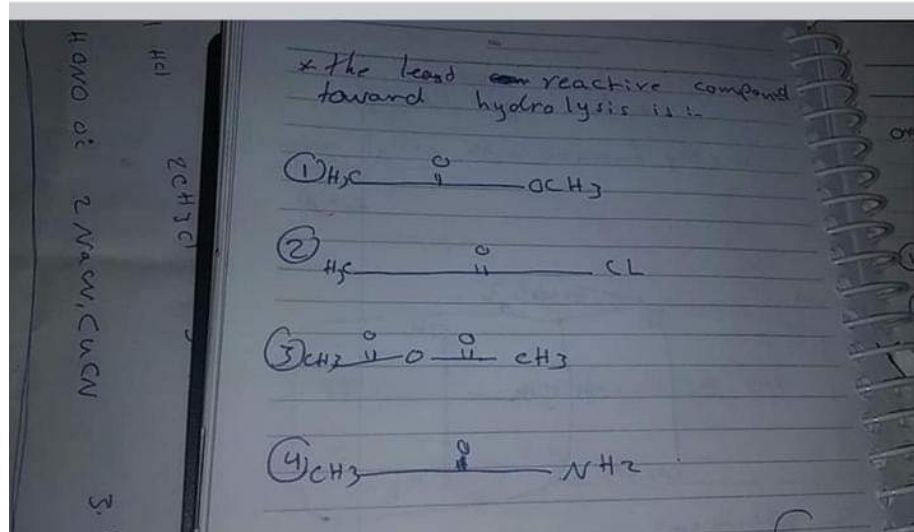 * the least reactive compound
toward hydrolysis is :-
① H3C O OCH3
② H3C O CL
③ CH3 O O O CH3
④ CH3 O NH2
HCl
2CH3Cl
HONO 0c 2 NaCN, CuCN 3.